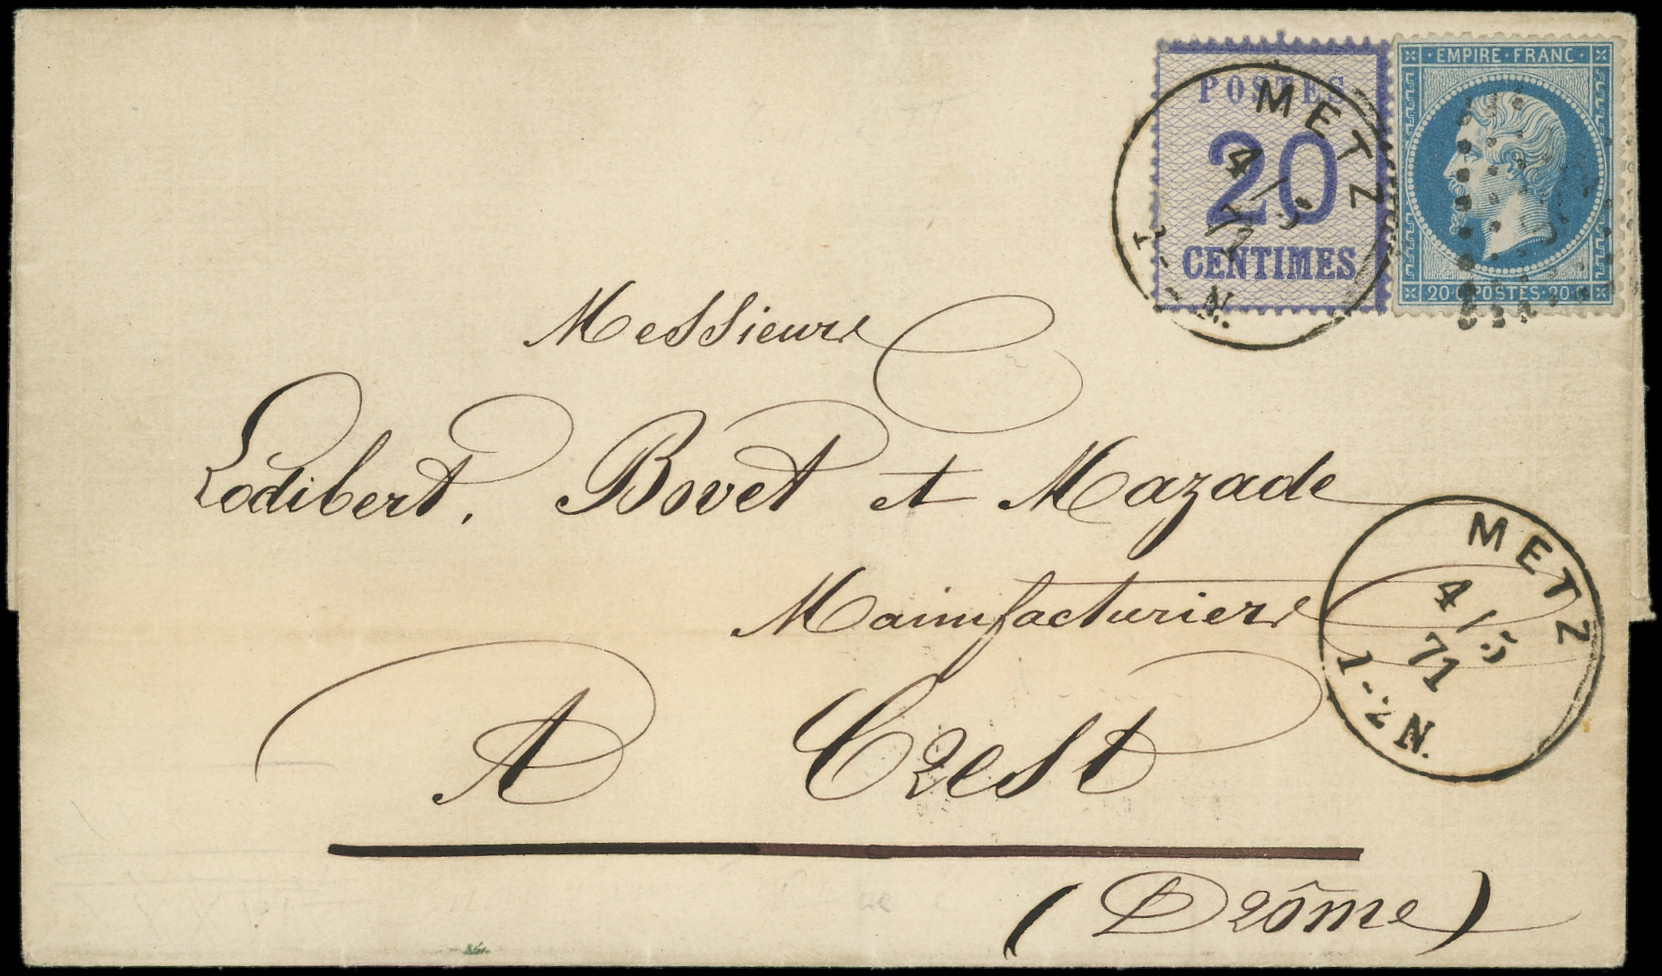 POSTES
20
CENTIMES
EMPIRE·FRANC·
20·C·POSTES·20·C
METZ
4/5
71
1-2 N.
Messieurs
Lodibert, Bovet et Mazade
Manufacturiers
A Crest
(Drôme)
METZ
4/5
71
1-2 N.